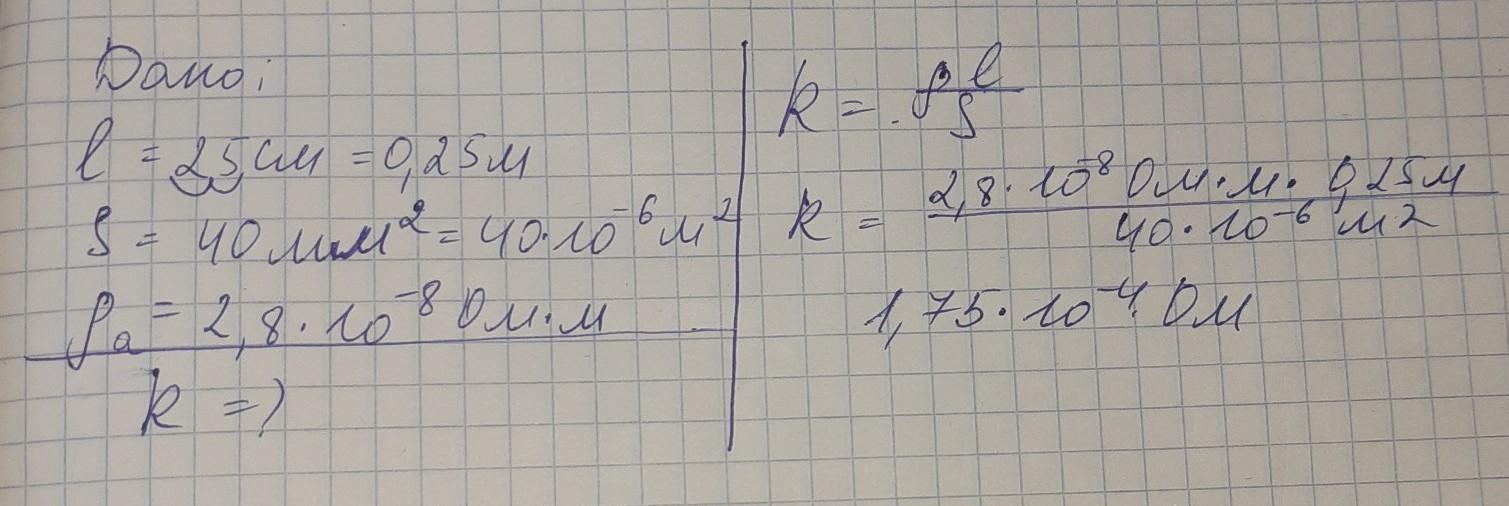 Дано:
l = 25 см = 0,25 м
S = 40 мм² = 40·10⁻⁶ м²
ρₐ = 2,8·10⁻⁸ Ом·м
R = ?
R = ρ l/S
R = 2,8·10⁻⁸ Ом·м·0,25 м / 40·10⁻⁶ м2
1,75·10⁻⁴ Ом